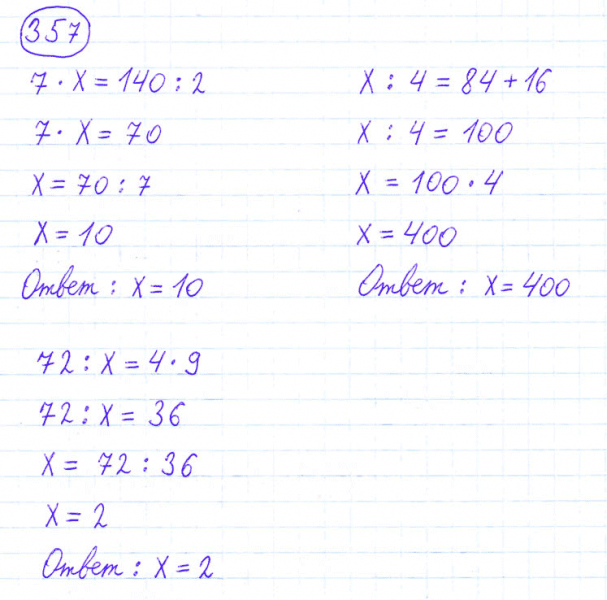 357
7 · x = 140 : 2
7 · x = 70
x = 70 : 7
x = 10
Ответ : x = 10
x : 4 = 84 + 16
x : 4 = 100
x = 100 · 4
x = 400
Ответ : x = 400
72 : x = 4 · 9
72 : x = 36
x = 72 : 36
x = 2
Ответ : x = 2